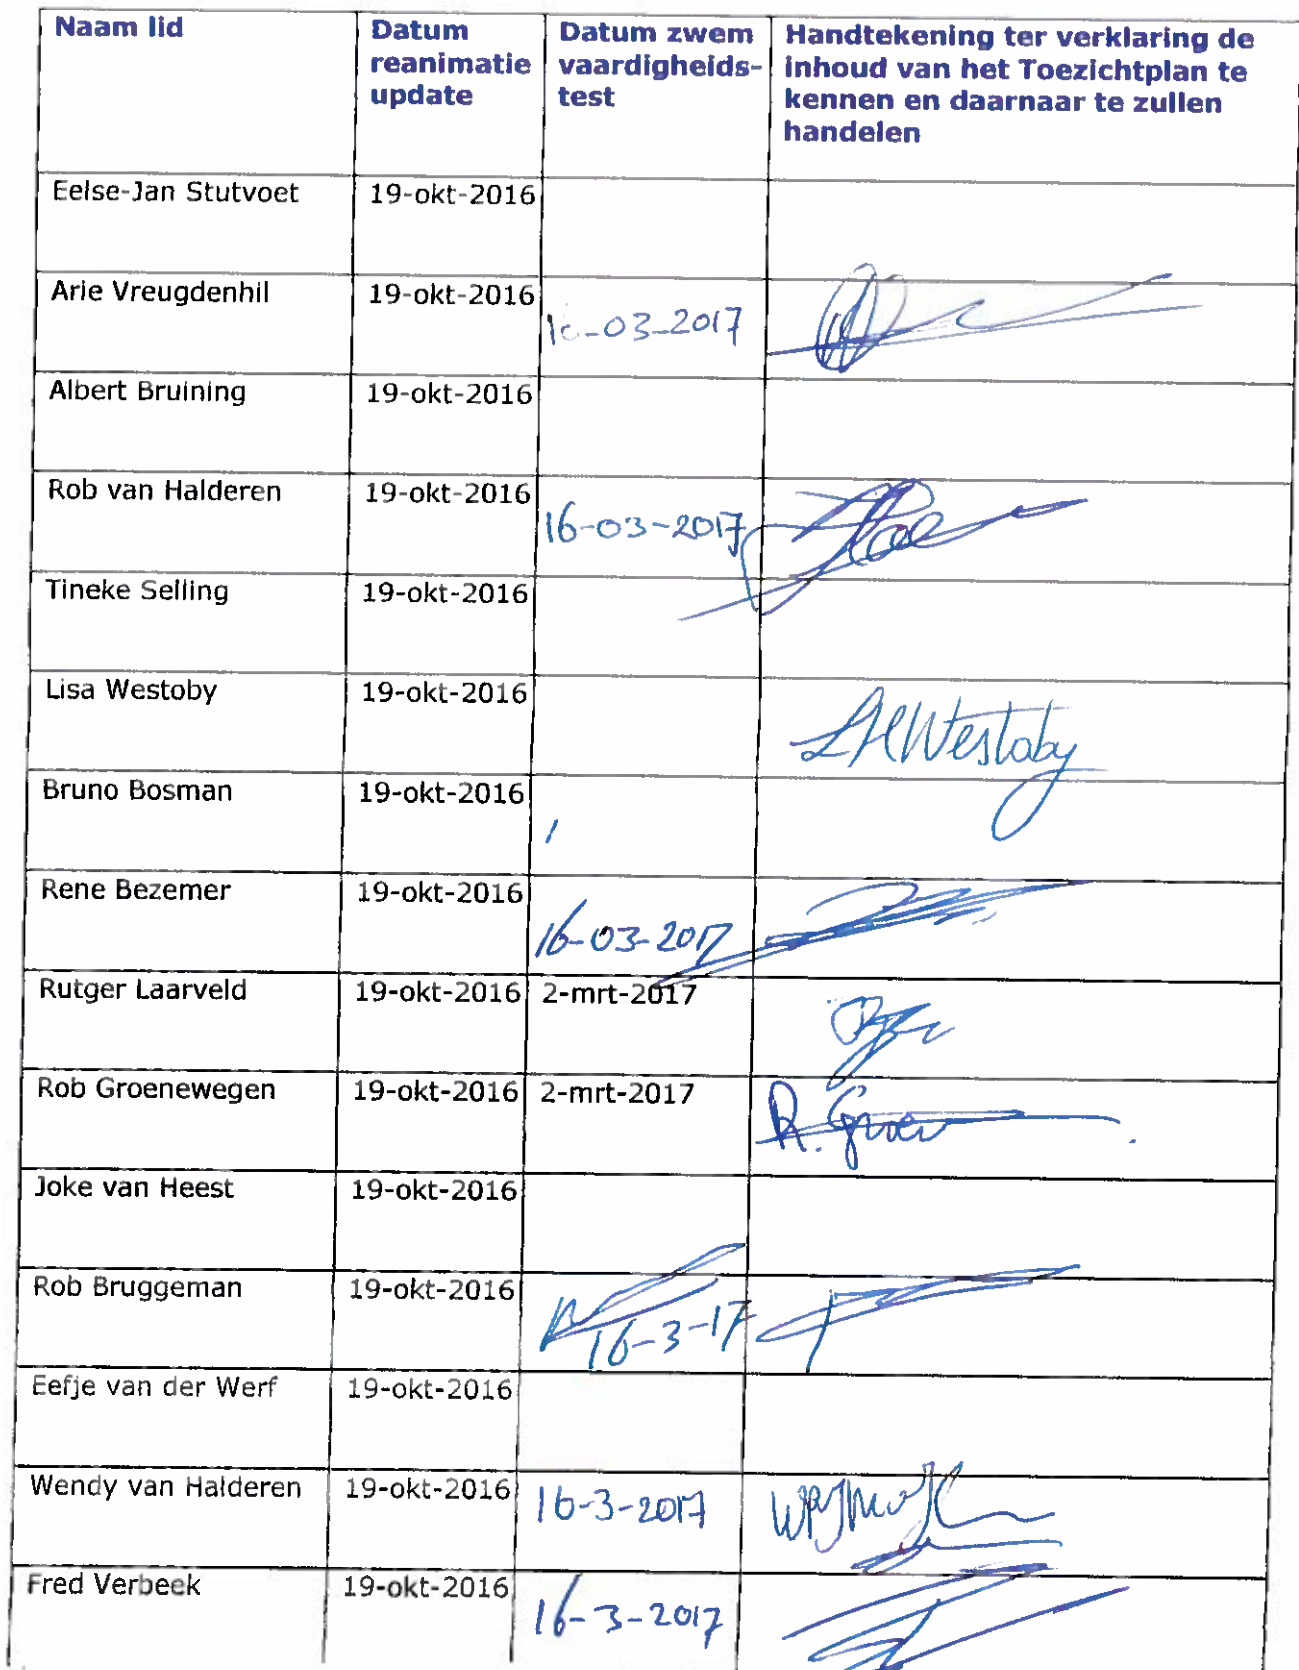 Naam lid
Datum reanimatie update
Datum zwem vaardigheids-test
Handtekening ter verklaring de inhoud van het Toezichtplan te kennen en daarnaar te zullen handelen
Eelse-Jan Stutvoet 19-okt-2016
Arie Vreugdenhil 19-okt-2016 -03-2017
Albert Bruining 19-okt-2016
Rob van Halderen 19-okt-2016 16-03-2017
Tineke Selling 19-okt-2016
Lisa Westoby 19-okt-2016 Westoby
Bruno Bosman 19-okt-2016
Rene Bezemer 19-okt-2016 16-03-2017
Rutger Laarveld 19-okt-2016 2-mrt-2017
Rob Groenewegen 19-okt-2016 2-mrt-2017 R.
Joke van Heest 19-okt-2016
Rob Bruggeman 19-okt-2016 16-3-17
Eefje van der Werf 19-okt-2016
Wendy van Halderen 19-okt-2016 16-3-2017
Fred Verbeek 19-okt-2016 16-3-2017